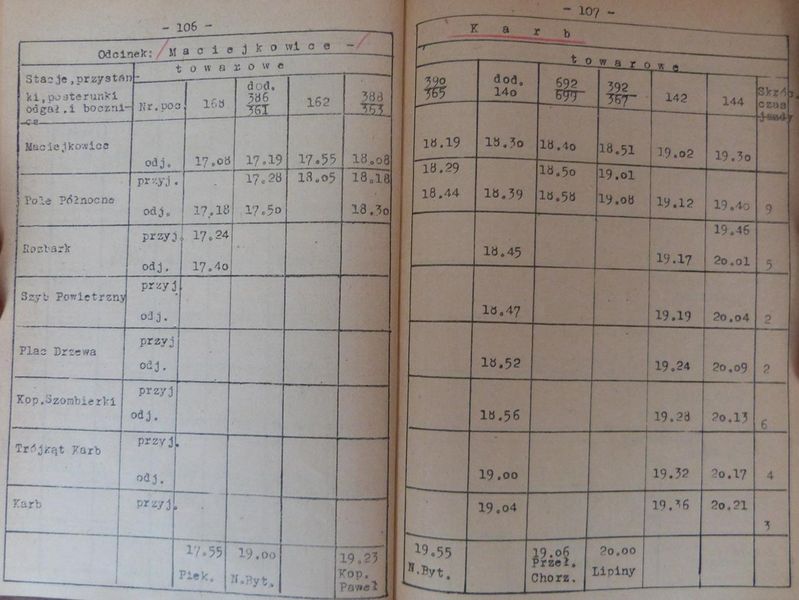 - 106 -
Odcinek: / M a c i e j k o w i c e - /
Stacje, przystan-
ki, posterunki
odgał. i boczni-
ce
t o w a r o w e
Nr. poc 168 dod. 386/361 162 388/363
Maciejkowice
odj. 17.08 17.19 17.55 18.08
przyj. 17.28 18.05 18.18
Pole Północne
odj. 17.18 17.50 18.30
przyj. 17.24
Rozbark
odj. 17.40
przyj.
Szyb Powietrzny
odj.
przyj
Plac Drzewa
odj.
przyj
Kop. Szombierki
odj.
przyj.
Trójkąt Karb
odj.
Karb przyj.
17.55 19.00 19.23
Piek. N.Byt. Kop.
Paweł
- 107 -
K a r b
t o w a r o w e
390/365 dod. 140 692/699 392/367 142 144 Skróc.
czas
jazdy
18.19 18.30 18.40 18.51 19.02 19.30
18.29 18.50 19.01
18.44 18.39 18.58 19.08 19.12 19.40 9
19.46
18.45 19.17 20.01 5
18.47 19.19 20.04 2
18.52 19.24 20.09 2
18.56 19.28 20.13 6
19.00 19.32 20.17 4
19.04 19.36 20.21
3
19.55 19.06 20.00
N.Byt. Przeł. Lipiny
Chorz.